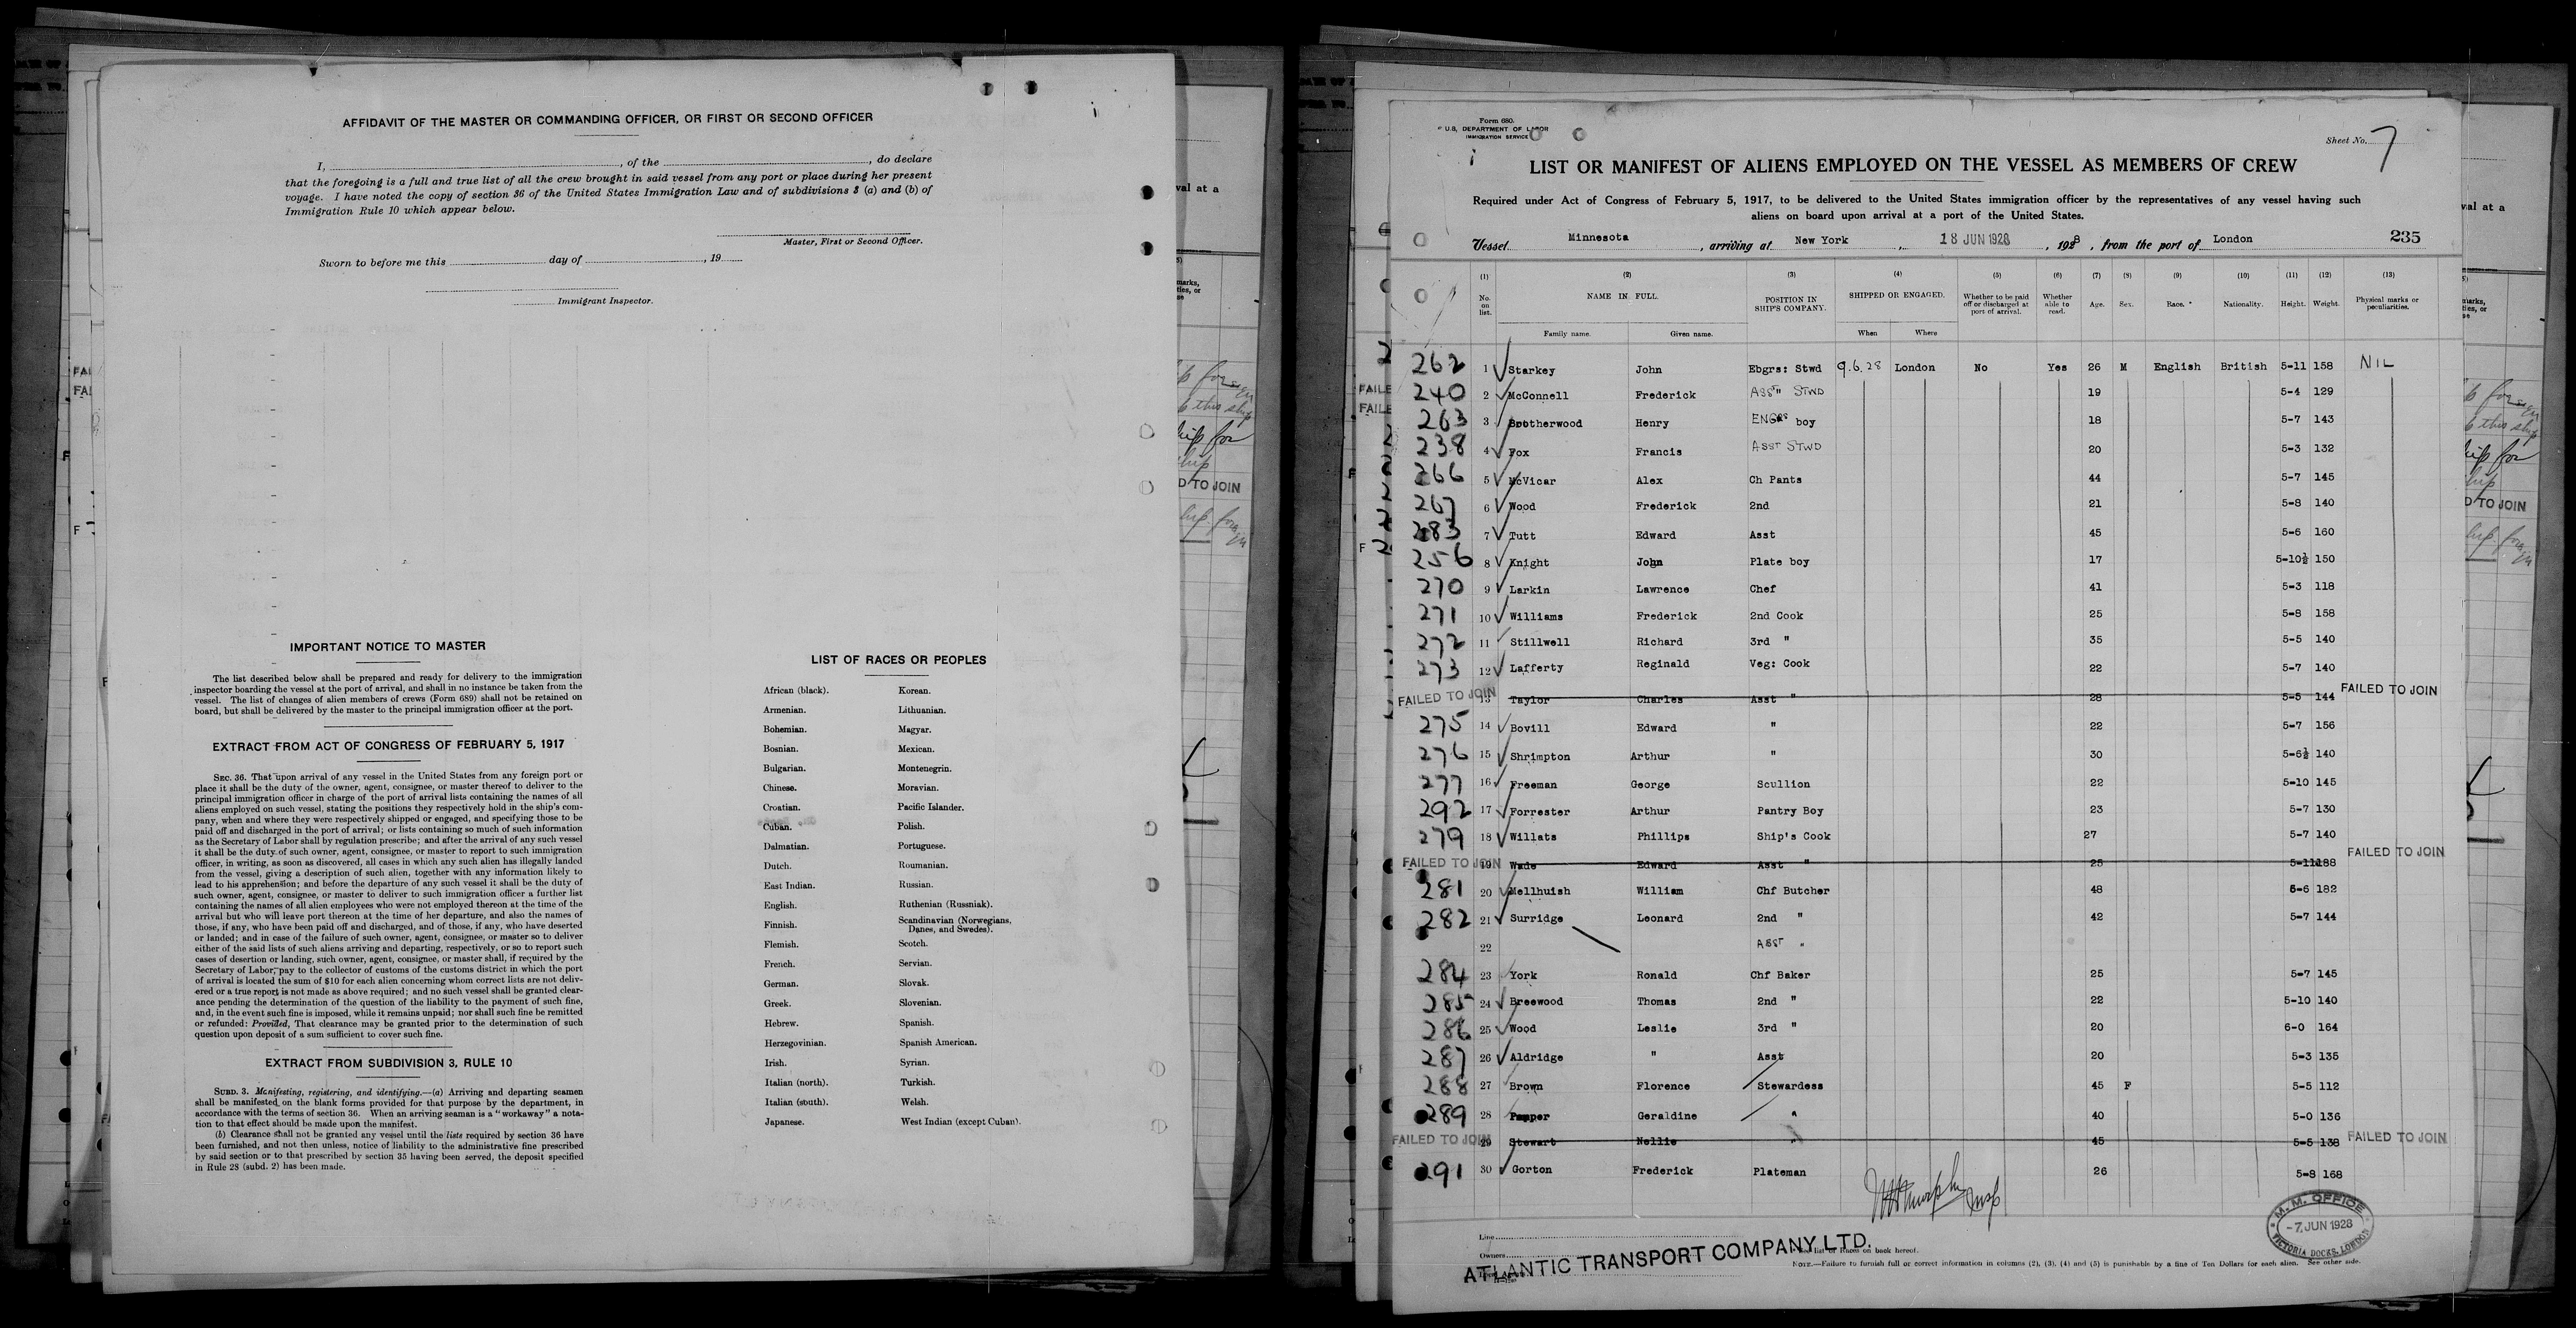 AFFIDAVIT OF THE MASTER OR COMMANDING OFFICER, OR FIRST OR SECOND OFFICER
I, , of the , do declare
that the foregoing is a full and true list of all the crew brought in said vessel from any port or place during her present
voyage. I have noted the copy of section 36 of the United States Immigration Law and of subdivisions 3 (a) and (b) of
Immigration Rule 10 which appear below.
Master, First or Second Officer.
Sworn to before me this day of , 19
Immigrant Inspector.
IMPORTANT NOTICE TO MASTER
The list described below shall be prepared and ready for delivery to the immigration
inspector boarding the vessel at the port of arrival, and shall in no instance be taken from the
vessel. The list of changes of alien members of crews (Form 689) shall not be retained on
board, but shall be delivered by the master to the principal immigration officer at the port.
EXTRACT FROM ACT OF CONGRESS OF FEBRUARY 5, 1917
SEC. 36. That upon arrival of any vessel in the United States from any foreign port or
place it shall be the duty of the owner, agent, consignee, or master thereof to deliver to the
principal immigration officer in charge of the port of arrival lists containing the names of all
aliens employed on such vessel, stating the positions they respectively hold in the ship's com-
pany, when and where they were respectively shipped or engaged, and specifying those to be
paid off and discharged in the port of arrival; or lists containing so much of such information
as the Secretary of Labor shall by regulation prescribe; and after the arrival of any such vessel
it shall be the duty of such owner, agent, consignee, or master to report to such immigration
officer, in writing, as soon as discovered, all cases in which any such alien has illegally landed
from the vessel, giving a description of such alien, together with any information likely to
lead to his apprehension; and before the departure of any such vessel it shall be the duty of
such owner, agent, consignee, or master to deliver to such immigration officer a further list
containing the names of all alien employees who were not employed thereon at the time of the
arrival but who will leave port thereon at the time of her departure, and also the names of
those, if any, who have been paid off and discharged, and of those, if any, who have deserted
or landed; and in case of the failure of such owner, agent, consignee, or master so to deliver
either of the said lists of such aliens arriving and departing, respectively, or so to report such
cases of desertion or landing, such owner, agent, consignee, or master shall, if required by the
Secretary of Labor, pay to the collector of customs of the customs district in which the port
of arrival is located the sum of $10 for each alien concerning whom correct lists are not deliv-
ered or a true report is not made as above required; and no such vessel shall be granted clear-
ance pending the determination of the question of the liability to the payment of such fine,
and, in the event such fine is imposed, while it remains unpaid; nor shall such fine be remitted
or refunded: Provided, That clearance may be granted prior to the determination of such
question upon deposit of a sum sufficient to cover such fine.
EXTRACT FROM SUBDIVISION 3, RULE 10
SUBD. 3. Manifesting, registering, and identifying.—(a) Arriving and departing seamen
shall be manifested on the blank forms provided for that purpose by the department, in
accordance with the terms of section 36. When an arriving seaman is a "workaway" a nota-
tion to that effect should be made upon the manifest.
(b) Clearance shall not be granted any vessel until the lists required by section 36 have
been furnished, and not then unless, notice of liability to the administrative fine prescribed
by said section or to that prescribed by section 35 having been served, the deposit specified
in Rule 28 (subd. 2) has been made.
LIST OF RACES OR PEOPLES
African (black). Korean.
Armenian. Lithuanian.
Bohemian. Magyar.
Bosnian. Mexican.
Bulgarian. Montenegrin.
Chinese. Moravian.
Croatian. Pacific Islander.
Cuban. Polish.
Dalmatian. Portuguese.
Dutch. Roumanian.
East Indian. Russian.
English. Ruthenian (Russniak).
Finnish. Scandinavian (Norwegians,
Danes, and Swedes).
Flemish. Scotch.
French. Servian.
German. Slovak.
Greek. Slovenian.
Hebrew. Spanish.
Herzegovinian. Spanish American.
Irish. Syrian.
Italian (north). Turkish.
Italian (south). Welsh.
Japanese. West Indian (except Cuban).
Form 680.
U.S. DEPARTMENT OF LABOR
IMMIGRATION SERVICE
Sheet No. 7
LIST OR MANIFEST OF ALIENS EMPLOYED ON THE VESSEL AS MEMBERS OF CREW
Required under Act of Congress of February 5, 1917, to be delivered to the United States immigration officer by the representatives of any vessel having such
aliens on board upon arrival at a port of the United States.
Vessel Minnesota , arriving at New York , 18 JUN 1928 , 1928 , from the port of London 235
(1) (2) (3) (4) (5) (6) (7) (8) (9) (10) (11) (12) (13)
No. on list. NAME IN FULL. POSITION IN SHIP'S COMPANY. SHIPPED OR ENGAGED. Whether to be paid off or discharged at port of arrival. Whether able to read. Age. Sex. Race.* Nationality. Height. Weight. Physical marks or peculiarities.
Family name. Given name. When Where
262 1 Starkey John Ebgrs: Stwd 9.6.28 London No Yes 26 M English British 5-11 158 NIL
240 2 McConnell Frederick ASST STWD 19 5-4 129
263 3 Brotherwood Henry ENGRS boy 18 5-7 143
238 4 Fox Francis ASST STWD 20 5-3 132
266 5 McVicar Alex Ch Pants 44 5-7 145
267 6 Wood Frederick 2nd 21 5-8 140
283 7 Tutt Edward Asst 45 5-6 160
256 8 Knight John Plate boy 17 5-10½ 150
270 9 Larkin Lawrence Chef 41 5-3 118
271 10 Williams Frederick 2nd Cook 25 5-8 158
272 11 Stillwell Richard 3rd " 35 5-5 140
273 12 Lafferty Reginald Veg: Cook 22 5-7 140
FAILED TO JOIN 13 Taylor Charles Asst " 28 5-5 144 FAILED TO JOIN
275 14 Bovill Edward " 22 5-7 156
276 15 Shrimpton Arthur " 30 5-6½ 140
277 16 Freeman George Scullion 22 5-10 145
292 17 Forrester Arthur Pantry Boy 23 5-7 130
279 18 Willats Phillips Ship's Cook 27 5-7 140
FAILED TO JOIN 19 Wade Edward Asst " 25 5-11 188 FAILED TO JOIN
281 20 Mellhuish William Chf Butcher 48 5-6 182
282 21 Surridge Leonard 2nd " 42 5-7 144
22 ASST "
284 23 York Ronald Chf Baker 25 5-7 145
285 24 Breewood Thomas 2nd " 22 5-10 140
286 25 Wood Leslie 3rd " 20 6-0 164
287 26 Aldridge " Asst 20 5-3 135
288 27 Brown Florence Stewardess 45 F 5-5 112
289 28 Pamper Geraldine " 40 5-0 136
FAILED TO JOIN 29 Stewart Nellie " 45 5-5 138 FAILED TO JOIN
291 30 Gorton Frederick Plateman 26 5-8 168
Line
Owners
ATLANTIC TRANSPORT COMPANY LTD.
list of Races on back hereof.
NOTE.—Failure to furnish full or correct information in columns (2), (3), (4) and (5) is punishable by a fine of Ten Dollars for each alien. See other side.
M. M. OFFICE
-7 JUN 1928
VICTORIA DOCKS, LONDON